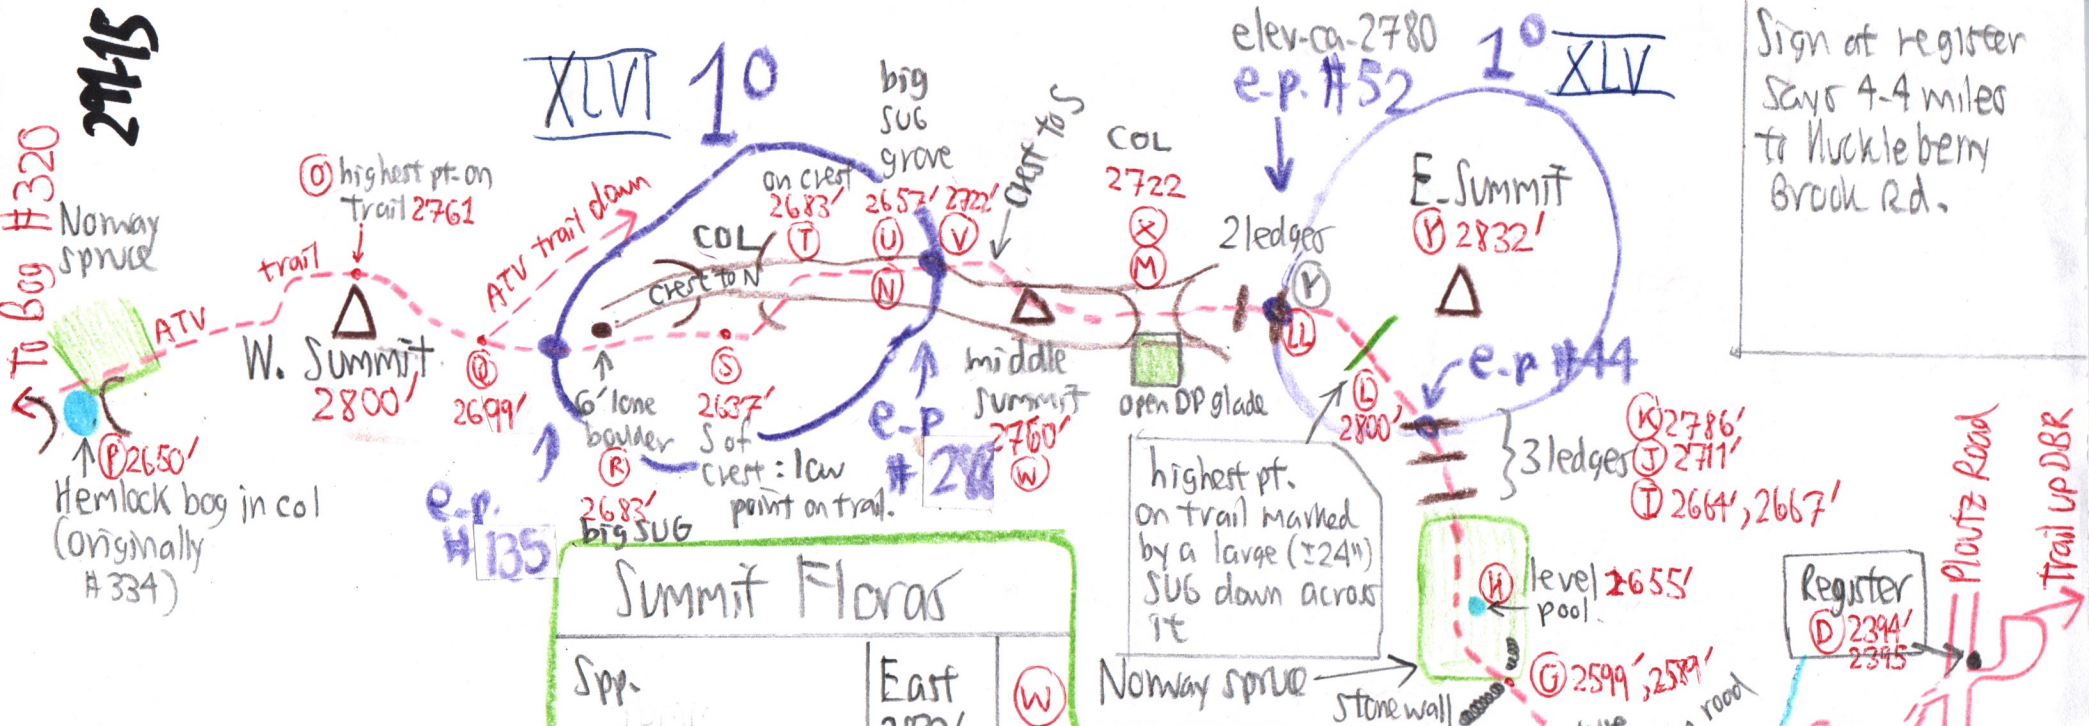 291-15
To Bog #320
Norway
spruce
ATV
trail
O highest pt. on
trail 2761
W. Summit
2800'
P 2650'
Hemlock bog in col
(originally
#334)
XLVI 1°
ATV trail down
Q
2699'
e.p.
#135
COL
crest to N
6' lone
boulder
R
2683'
big SUG
S
2637'
S of
crest: low
point on trail.
on crest
2683'
T
big
SUG
grove
2657'
U
N
2722'
V
crest to S
e.p.
#
middle
summit
2760'
W
COL
2722
X
M
open DP glade
elev. ca. 2780
e.p. #52
1° XLV
2 ledges
Y
LL
E. Summit
Y 2832'
e.p. #44
L
2800'
highest pt.
on trail marked
by a large (±24")
SUG down across
it
3 ledges
K 2786'
J 2711'
I 2664', 2667'
H level 2655'
pool.
Norway spruce
stone wall
G 2599', 2589'
road
Sign at register
says 4.4 miles
to Huckleberry
Brook Rd.
Register
D 2394'
2395
Ploutz Road
Trail up DBR
Summit Floras
Spp.
East
W